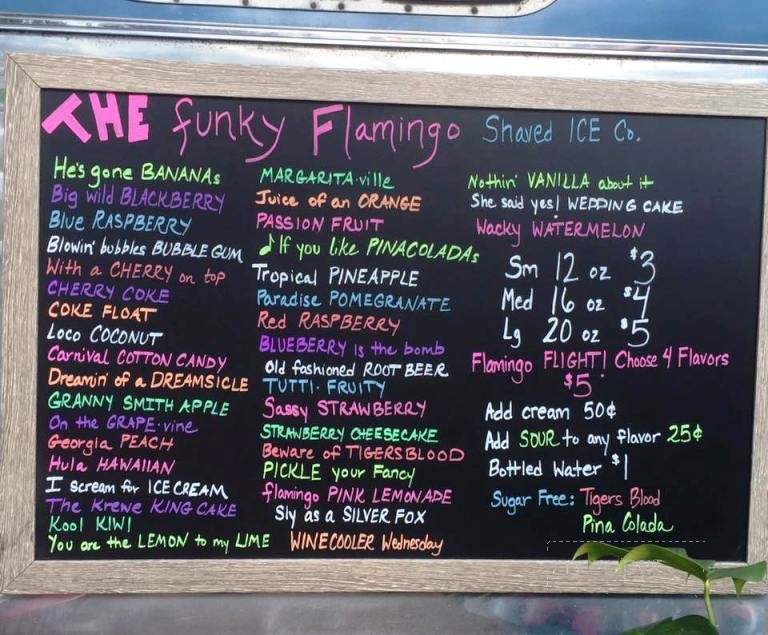 THE Funky Flamingo Shaved ICE Co.
He's gone BANANAs
Big wild BLACKBERRY
Blue RASPBERRY
Blowin' bubbles BUBBLE GUM
With a CHERRY on top
CHERRY COKE
COKE FLOAT
Loco COCONUT
Carnival COTTON CANDY
Dreamin' of a DREAMSICLE
GRANNY SMITH APPLE
On the GRAPE-vine
Georgia PEACH
Hula HAWAIIAN
I scream for ICE CREAM
The Krewe KING CAKE
Kool KIWI
You are the LEMON to my LIME
MARGARITA-ville
Juice of an ORANGE
PASSION FRUIT
♪ If you like PINACOLADAs
Tropical PINEAPPLE
Paradise POMEGRANATE
Red RASPBERRY
BLUEBERRY is the bomb
Old fashioned ROOT BEER
TUTTI-FRUITY
Sassy STRAWBERRY
STRAWBERRY CHEESECAKE
Beware of TIGERSBLOOD
PICKLE your Fancy
flamingo PINK LEMONADE
Sly as a SILVER FOX
WINECOOLER Wednesday
Nothin' VANILLA about it
She said yes! WEDDING CAKE
Wacky WATERMELON
Sm 12 oz $3
Med 16 oz $4
Lg 20 oz $5
Flamingo FLIGHT! Choose 4 Flavors
$5
Add cream 50¢
Add SOUR to any flavor 25¢
Bottled Water $1
Sugar Free: Tigers Blood
Pina Colada